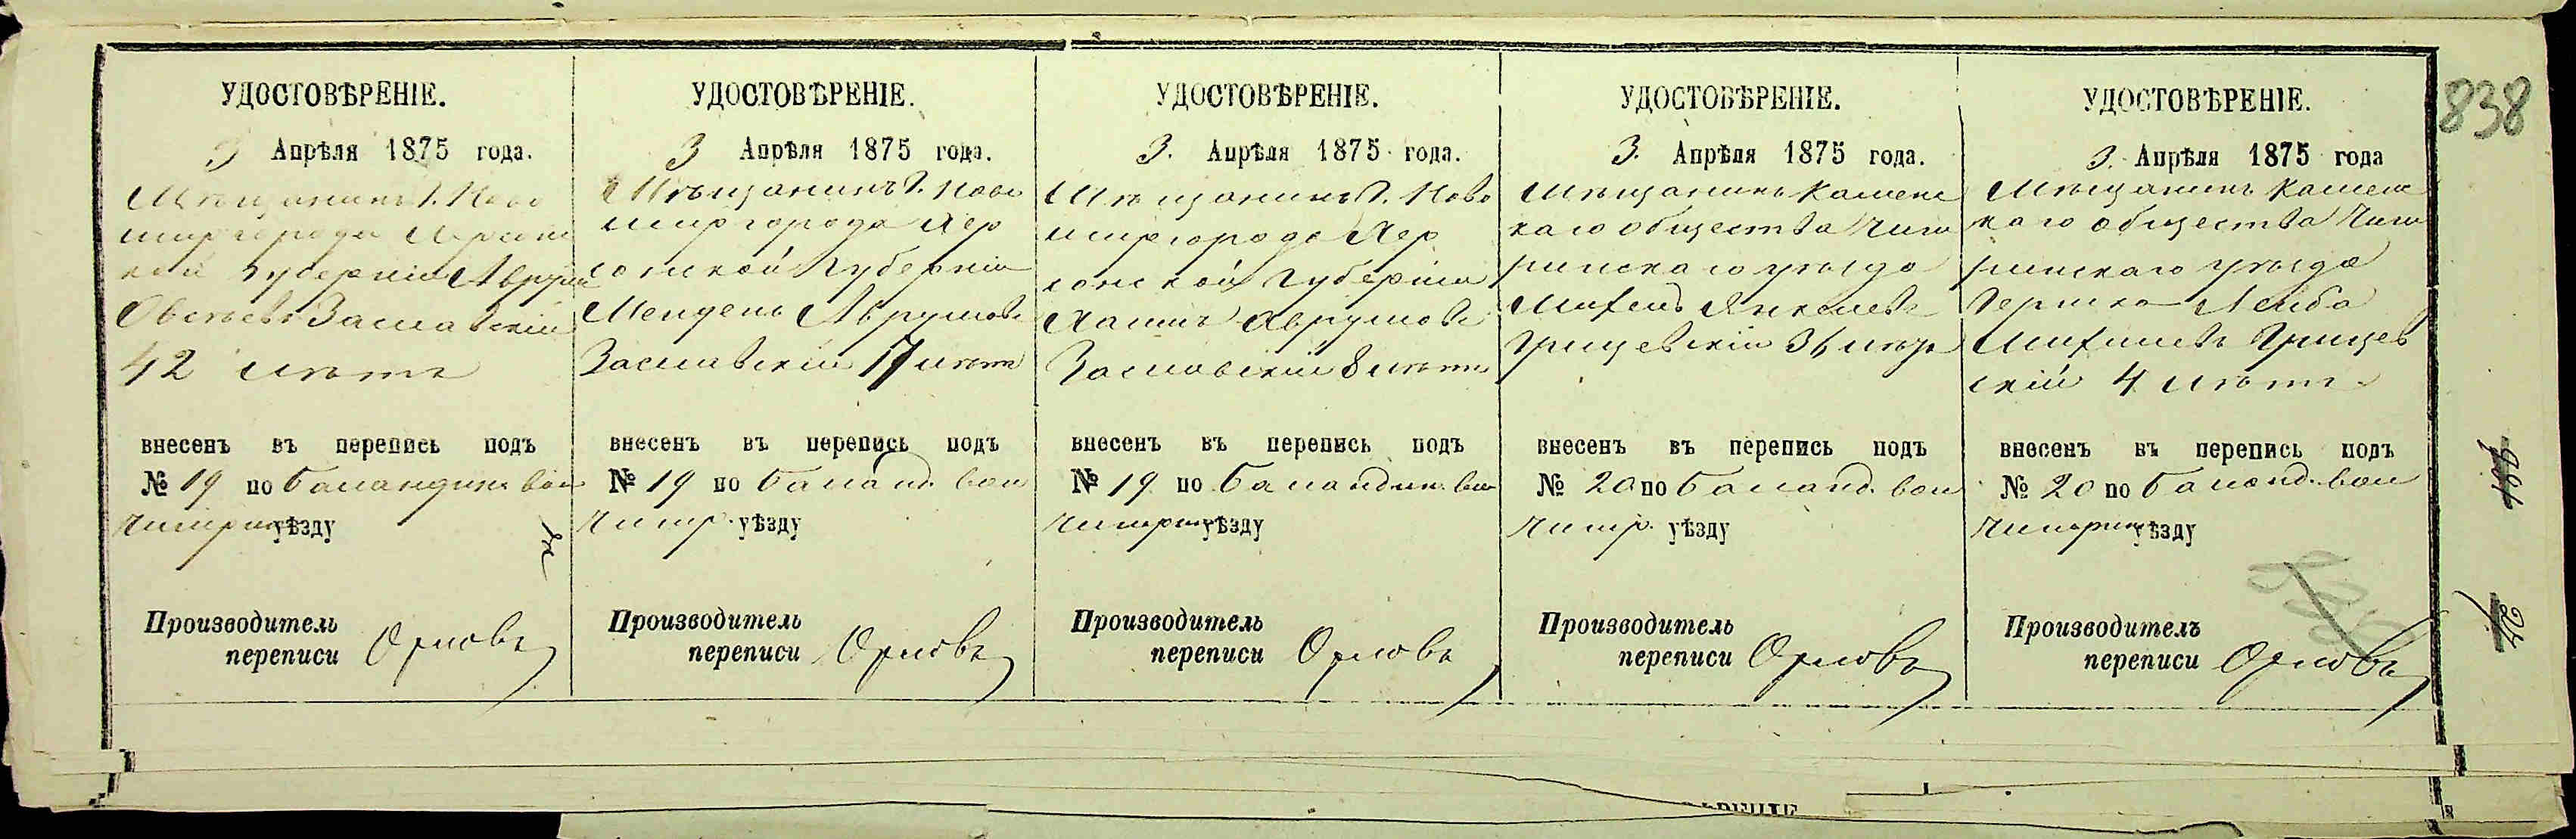 УДОСТОВѢРЕНІЕ.
3 Апрѣля 1875 года.
Мѣщанинъ г. Ново
миргорода Херсонс
кой губерніи Аврумъ
Овсѣевъ Заславскій
42 лѣтъ
внесенъ въ перепись подъ
№ 19 по Баландин. вол
Чигирин уѣзду
Производитель
переписи Орловъ
УДОСТОВѢРЕНІЕ.
3 Апрѣля 1875 года.
Мѣщанинъ г. Ново
миргорода Хер
сонской Губерніи
Мендель Аврумовъ
Заславскій 17 лѣтъ
внесенъ въ перепись подъ
№ 19 по Баланд. вол
Чигир. уѣзду
Производитель
переписи Орловъ
УДОСТОВѢРЕНІЕ.
3. Апрѣля 1875 года.
Мѣщанинъ г. Ново
миргорода Хер
сонской Губерніи
Хаимъ Аврумовъ
Заславскій 8 лѣтъ
внесенъ въ перепись подъ
№ 19 по Баландин. вол
Чигирин уѣзду
Производитель
переписи Орловъ
УДОСТОВѢРЕНІЕ.
3. Апрѣля 1875 года.
Мѣщанинъ Каменс
каго общества Чиги
ринскаго уѣзда
Михель Янкелевъ
Грищевскій 36 лѣтъ
внесенъ въ перепись подъ
№ 20 по Баланд. вол
Чигир. уѣзду
Производитель
переписи Орловъ
УДОСТОВѢРЕНІЕ.
3. Апрѣля 1875 года
Мѣщанинъ Каменс
каго общества Чиги
ринскаго уѣзда
Гершко Лейба
Михелевъ Грищев
скій 4 лѣтъ
внесенъ въ перепись подъ
№ 20 по Баланд. вол
Чигирин уѣзду
Производитель
переписи Орловъ
838